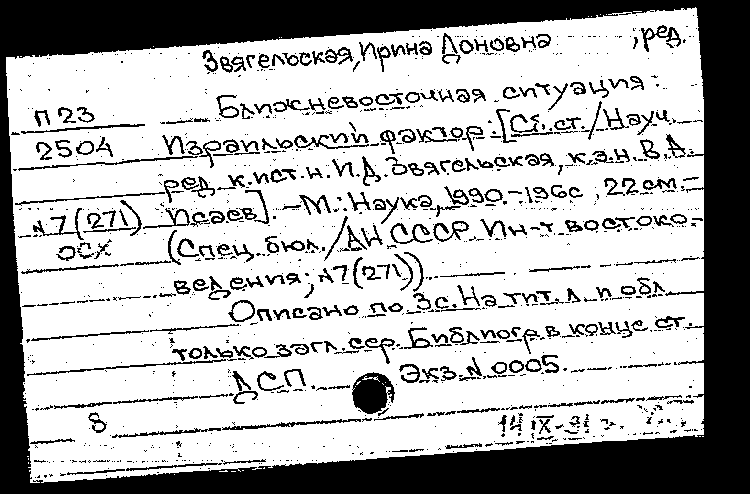 Звягельская, Ирина Доновна , ред.
П 23 Ближневосточная ситуация:
2504 Израильский фактор: [Сб. ст. / Науч.
ред. к.ист.н. И.Д. Звягельская, к.э.н. В.А.
N7(271) Исаев]. – М.: Наука, 1990. – 196с , 22см. –
ОСХ (Спец. бюл. / АН СССР. Ин-т востоко-
ведения; N7(271))
Описано по 3с. На тит. л. и обл.
только загл. сер. Библиогр. в конце ст.
ДСП. Экз. N 0005.
8 14 IX-91 г.